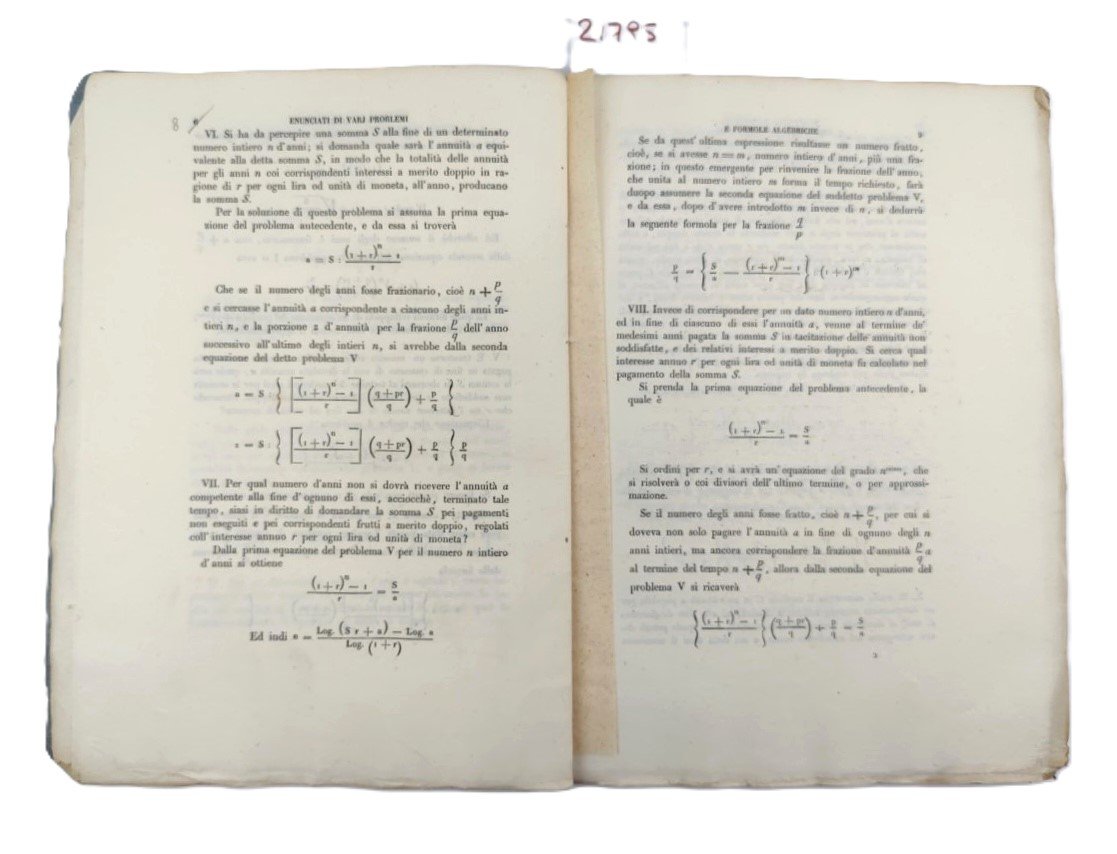 21795
8 6 ENUNCIATI DI VARJ PROBLEMI
VI. Si ha da percepire una somma S alla fine di un determinato
numero intiero n d'anni; si domanda quale sarà l'annuità a equi-
valente alla detta somma S, in modo che la totalità delle annuità
per gli anni n coi corrispondenti interessi a merito doppio in ra-
gione di r per ogni lira od unità di moneta, all'anno, producano
la somma S.
Per la soluzione di questo problema si assuma la prima equa-
zione del problema antecedente, e da essa si troverà
a = S : ((1 + r)^n − 1)/r
Che se il numero degli anni fosse frazionario, cioè n + p/q
e si cercasse l'annuità a corrispondente a ciascuno degli anni in-
tieri n, e la porzione z d'annuità per la frazione p/q dell'anno
successivo all'ultimo degli intieri n, si avrebbe dalla seconda
equazione del detto problema V
a = S : { [((1 + r)^n − 1)/r] ((q + pr)/q) + p/q {
z = S : } [((1 + r)^n − 1)/r] ((q + pr)/q) + p/q { p/q
VII. Per qual numero d'anni non si dovrà ricevere l'annuità a
competente alla fine d'ognuno di essi, acciocchè, terminato tale
tempo, siasi in diritto di domandare la somma S pei pagamenti
non eseguiti e pei corrispondenti frutti a merito doppio, regolati
coll'interesse annuo r per ogni lira od unità di moneta?
Dalla prima equazione del problema V per il numero n intiero
d'anni si ottiene
((1 + r)^n − 1)/r = S/a
Ed indi n = (Log. (S r + a) − Log. a)/(Log. (1 + r))
E FORMOLE ALGEBRICHE 9
Se da quest'ultima espressione risultasse un numero fratto,
cioè, se si avesse n = m, numero intiero d'anni, più una fra-
zione; in questo emergente per rinvenire la frazione dell'anno,
che unita al numero intiero m forma il tempo richiesto, farà
duopo assumere la seconda equazione del suddetto problema V,
e da essa, dopo d'avere introdotto m invece di n, si dedurrà
la seguente formola per la frazione q/p
p/q = { S/a − ((1 + r)^m − 1)/r } : (1 + r)^m
VIII. Invece di corrispondere per un dato numero intiero n d'anni,
ed in fine di ciascuno di essi l'annuità a, venne al termine de'
medesimi anni pagata la somma S in tacitazione delle annuità non
soddisfatte, e dei relativi interessi a merito doppio. Si cerca qual
interesse annuo r per ogni lira od unità di moneta fu calcolato nel
pagamento della somma S.
Si prenda la prima equazione del problema antecedente, la
quale è
((1 + r)^n − 1)/r = S/a
Si ordini per r, e si avrà un'equazione del grado n^esimo, che
si risolverà o coi divisori dell'ultimo termine, o per approssi-
mazione.
Se il numero degli anni fosse fratto, cioè n + p/q, per cui si
doveva non solo pagare l'annuità a in fine di ognuno degli n
anni intieri, ma ancora corrispondere la frazione d'annuità p/q a
al termine del tempo n + p/q, allora dalla seconda equazione del
problema V si ricaverà
{ ((1 + r)^n − 1)/r { ((q + pr)/q) + p/q = S/a
2